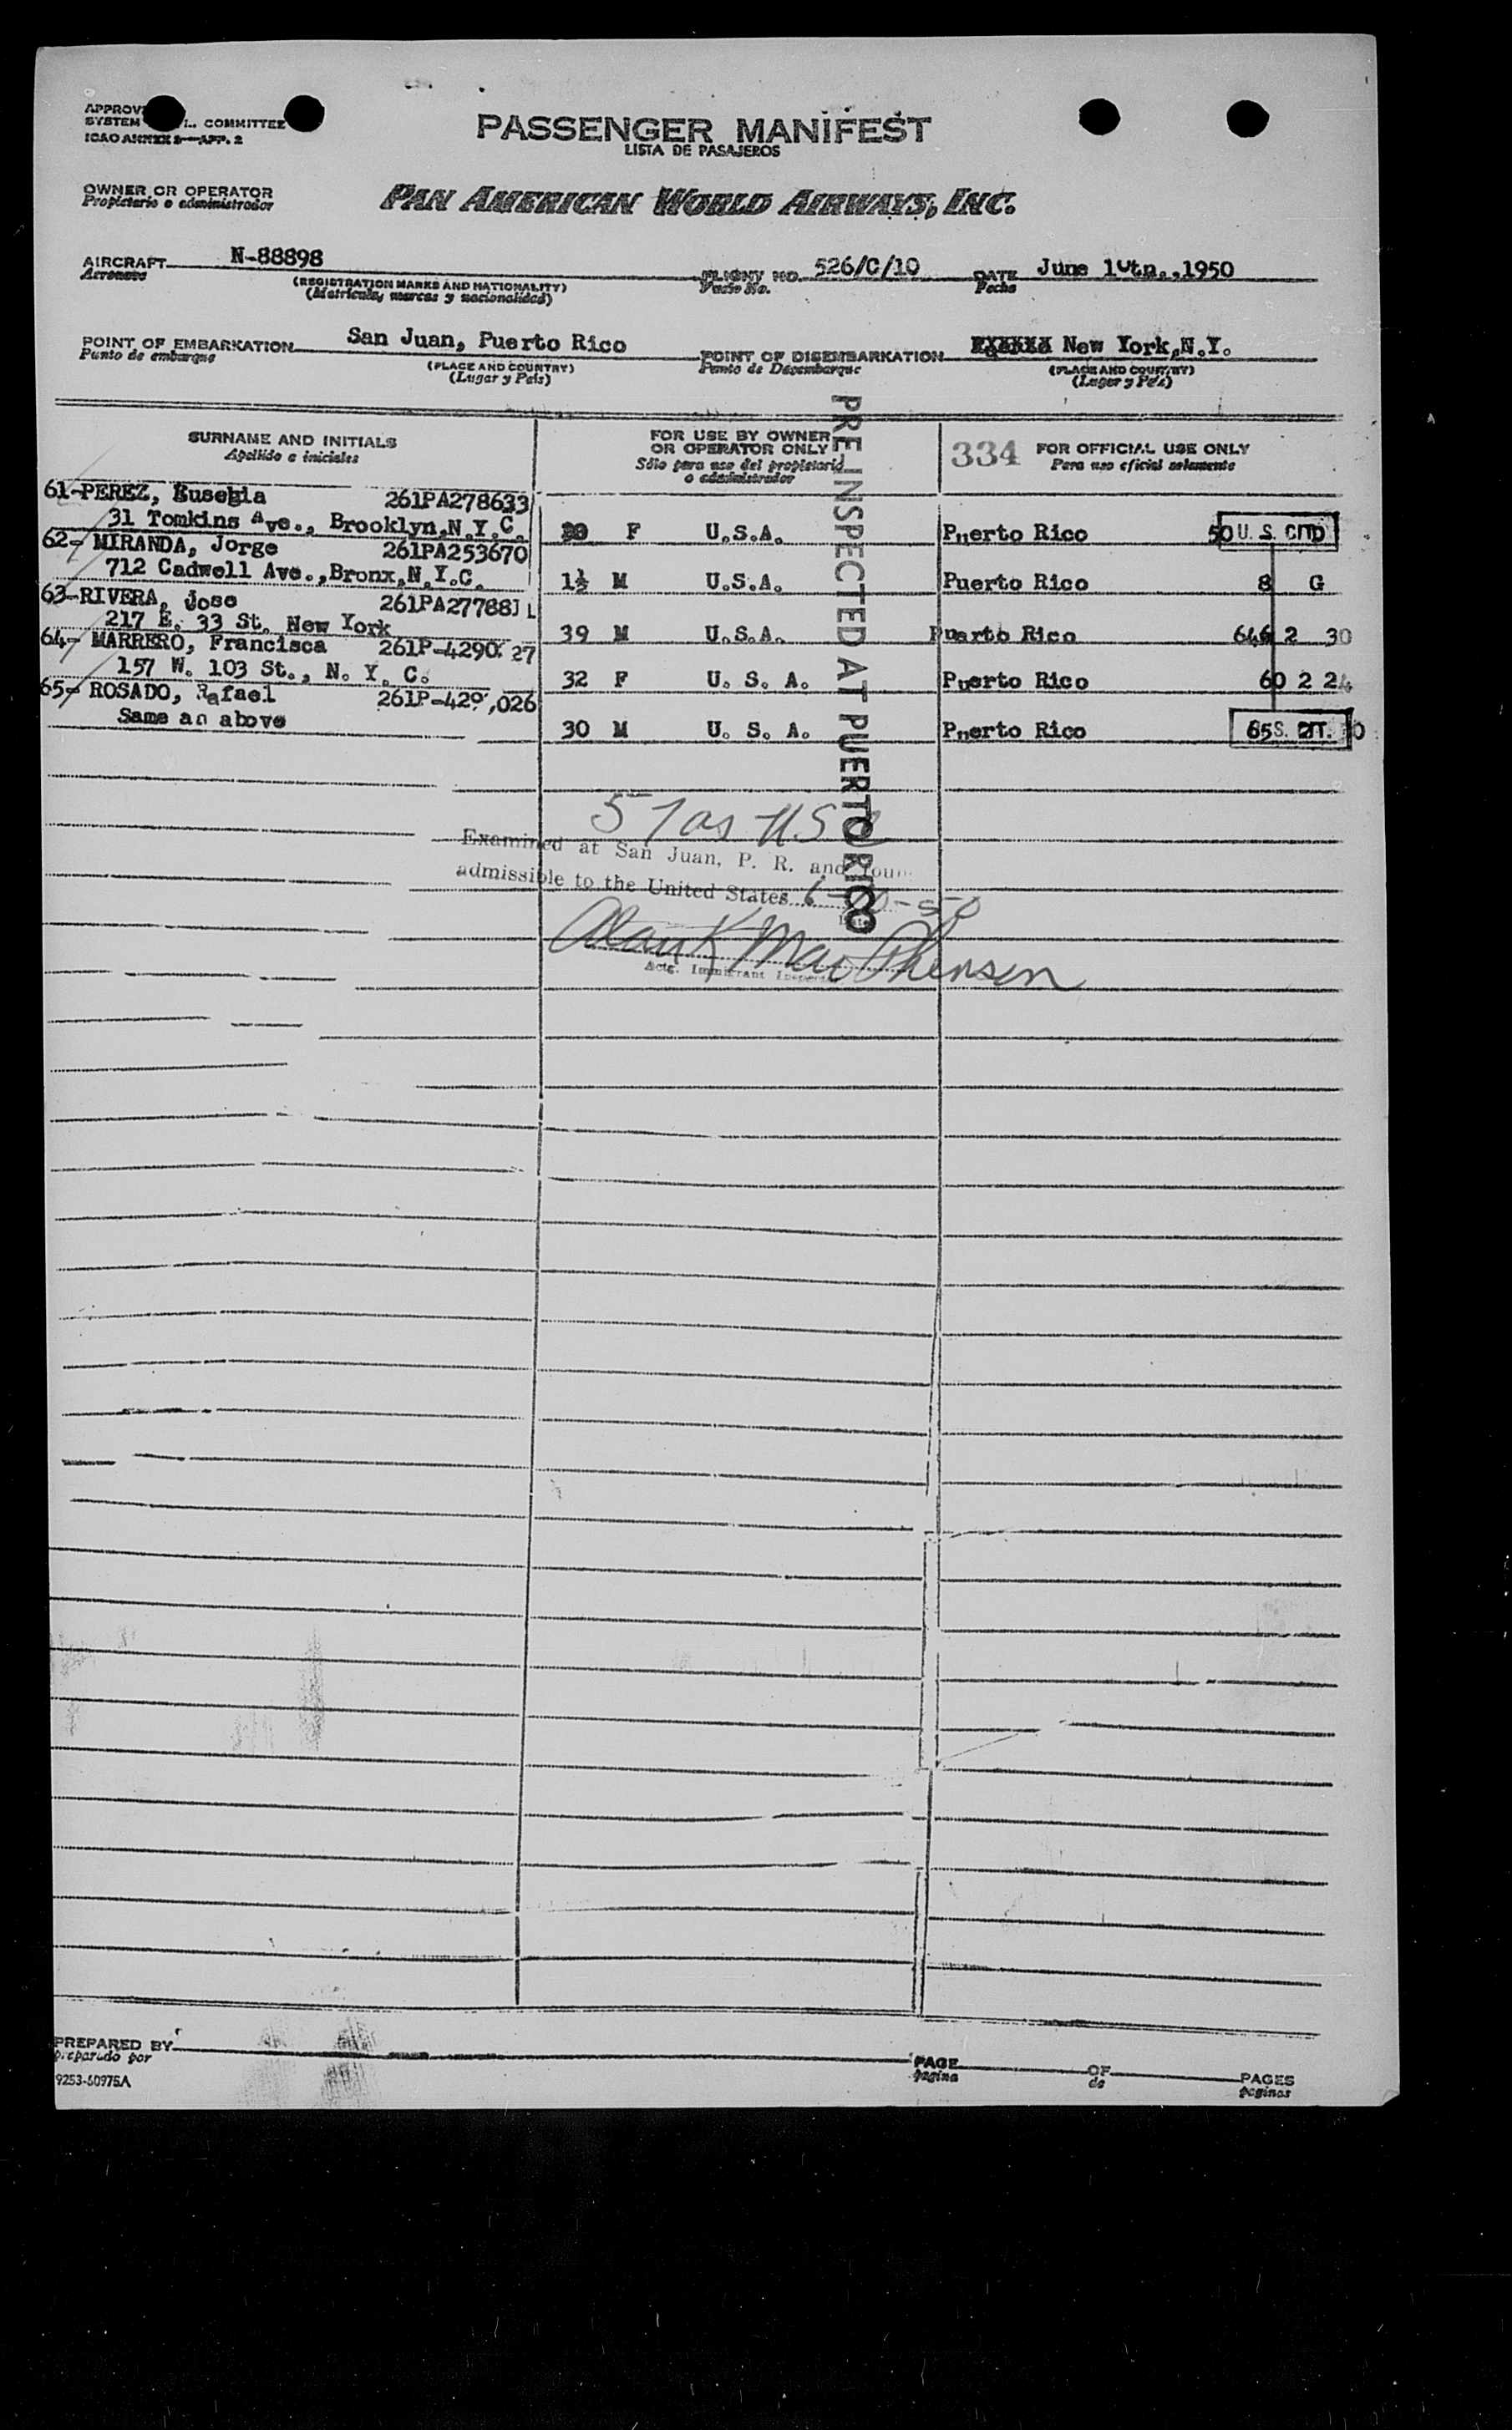 PASSENGER MANIFEST
LISTA DE PASAJEROS
SYSTEM COMMITTEE
ICAO ANNEX APP. 2
OWNER OR OPERATOR
Propietario o administrador
PAN AMERICAN WORLD AIRWAYS, INC.
AIRCRAFT N-88898 FLIGHT NO. 526/C/10 DATE June 10th.,1950
Aeronave (REGISTRATION MARKS AND NATIONALITY) Vuelo No. Fecha
(Matricula, marcas y nacionalidad)
POINT OF EMBARKATION San Juan, Puerto Rico POINT OF DISEMBARKATION New York,N.Y.
Punto de embarque (PLACE AND COUNTRY) Punto de Desembarque (PLACE AND COUNTRY)
(Lugar y Pais) (Lugar y Pais)
SURNAME AND INITIALS
Apellido e iniciales
FOR USE BY OWNER
OR OPERATOR ONLY
Sólo para uso del propietario
o administrador
334 FOR OFFICIAL USE ONLY
Para uso oficial solamente
PRE-INSPECTED AT PUERTO RICO
61-PEREZ, Eusebia 261PA278633
31 Tomkins Ave., Brooklyn,N.Y.C. F U.S.A. Puerto Rico 50 U. S. CIT
62- MIRANDA, Jorge 261PA253670
712 Cadwell Ave.,Bronx,N.Y.C. 1½ M U.S.A. Puerto Rico 8 G
63-RIVERA, Jose 261PA277881
217 E. 33 St. New York 39 M U.S.A. Puerto Rico 646 2 30
64- MARRERO, Francisca 261P-429027
157 W. 103 St., N. Y. C. 32 F U. S. A. Puerto Rico 60 2 24
65- ROSADO, Rafael 261P-429,026
Same as above 30 M U. S. A. Puerto Rico 65 S. CIT.
57 as USC
Examined at San Juan, P. R. and foun
admissible to the United States 6-10-50
Date
Alan K MacPherson
Actg. Immigrant Inspector
PREPARED BY
preparado por
PAGE OF PAGES
pagina de paginas
9253-60975A